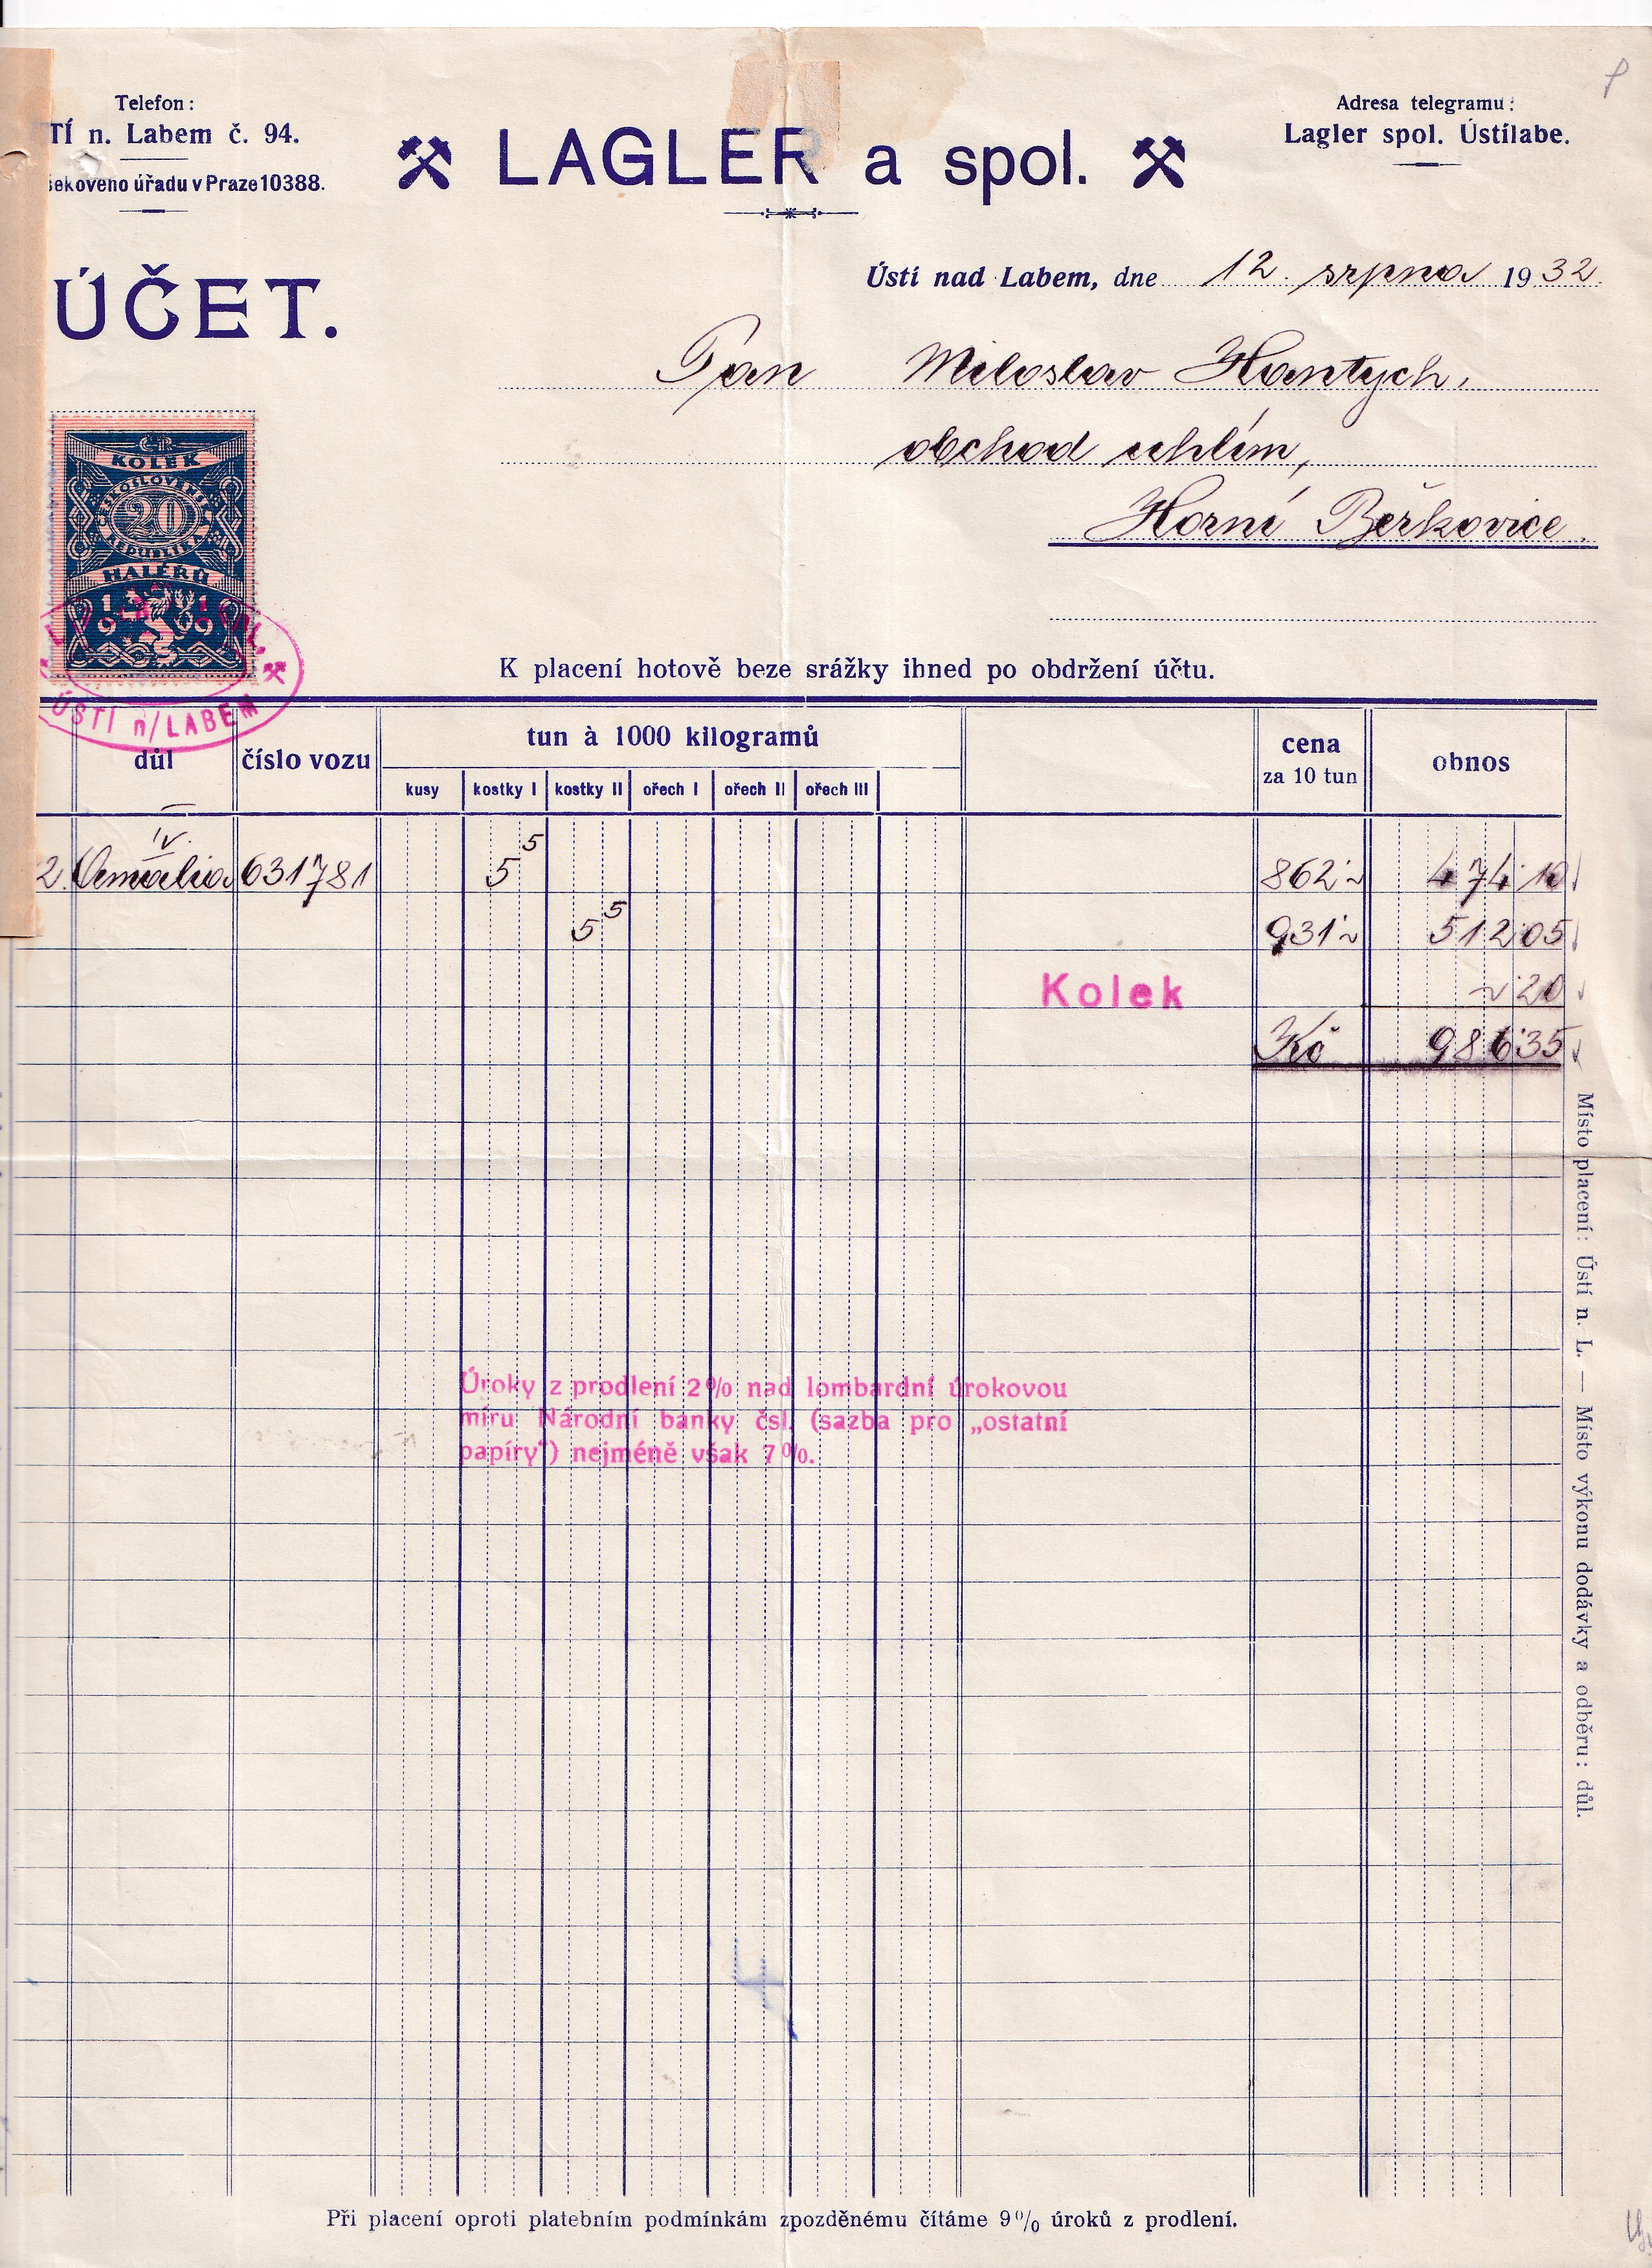 Telefon:
TÍ n. Labem č. 94.
šekového úřadu v Praze 10388.
LAGLER a spol.
Adresa telegramu:
Lagler spol. Ústílabe.
ÚČET.
Ústí nad Labem, dne 12. srpna 1932.
Pan Miloslav Hantych,
obchod uhlím,
Horní Beřkovice.
KOLEK
ČESKOSLOVENSKÁ
20
REPUBLIKA
HALÉŘŮ
1919
ÚSTÍ n/LABEM
K placení hotově beze srážky ihned po obdržení účtu.
důl číslo vozu tun à 1000 kilogramů cena za 10 tun obnos
kusy kostky I kostky II ořech I ořech II ořech III
2. Amalia IV. 631781 5 5 862·~ 474 10
5 5 931·~ 512 05
Kolek ~ 20
Kč 986 35
Úroky z prodlení 2% nad lombardní úrokovou
míru Národní banky čsl. (sazba pro „ostatní
papíry") nejméně však 7%.
Místo placení: Ústí n. L. — Místo výkonu dodávky a odběru: důl.
Při placení oproti platebním podmínkám zpozděnému čítáme 9% úroků z prodlení.